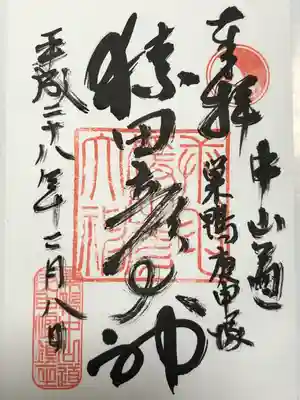 中山道
奉拝 巣鴨庚申塚
猿田彦大神
平成二十八年二月八日